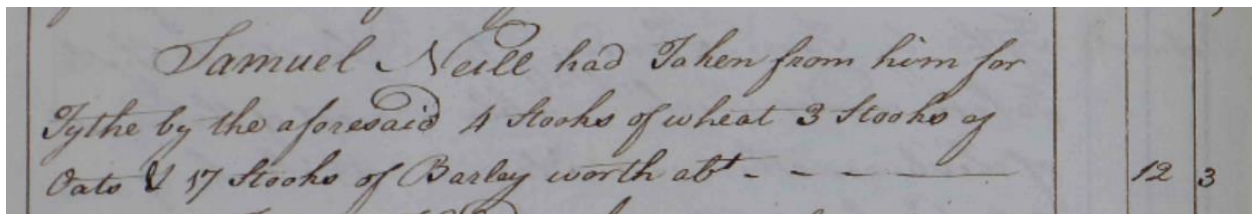 Samuel Neill had Taken from him for
Tythe by the aforesaid 4 Stooks of wheat 3 Stooks of
Oats & 17 Stooks of Barley worth abt - - - - 12 3